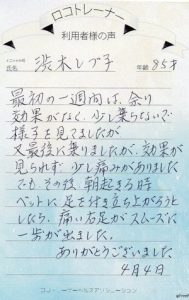 ロコトレーナー
利用者様の声
氏名 渋木レブ子 年齢 85才
最初の一週間は、余り
効果がなく、少し乗らないで
様子を見てましたが
又最後に乗りましたが、効果が
見られず 少し痛みがありました
でも その後 朝起きる時
ベットに足を付き立上がろうと
したら、痛い右足がスムーズに
一歩が出ました。
ありがとうございました
4月4日